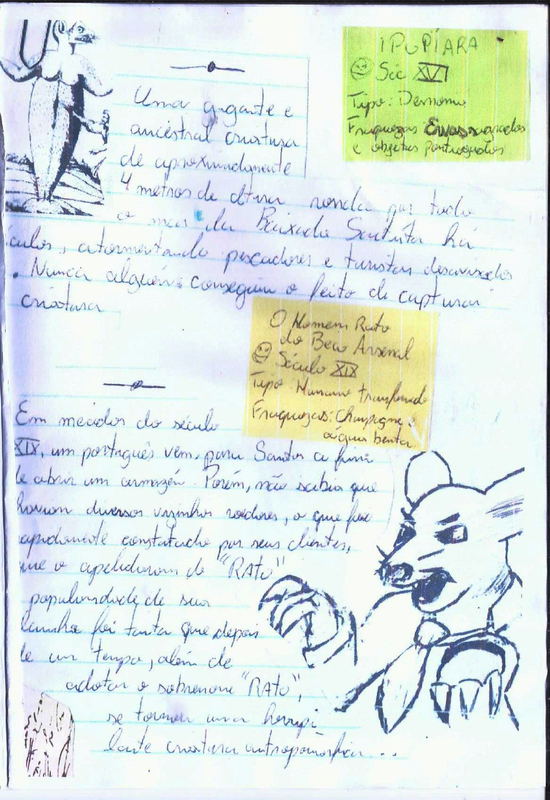 IPUPIARA
Séc XVI
Tipo: Demonio
Fraquezas
e objetos pontiagudos
Uma gigante e
ancestral criatura
de aproximadamente
4 metros de altura ronda por todo
o mar da Baixada Santista há
culos, atormentando pescadores e turistas desavisados
. Nunca alguem conseguiu o feito de capturar
criatura
O Homem Rato
do Beco Arsenal
Século XIX
Tipo: Humano transformado
Fraquezas: Champagne e
agua benta
Em meados do século
XIX, um português vem para Santos a fim
de abrir um armazém. Porém, não sabia que
haviam diversos vizinhos roedores, o que foi
apidamente constatado por seus clientes,
que o apelidaram de "RATO"
popularidade de sua
alcunha foi tanta que depois
de um tempo, além de
adotar o sobrenome "RATO",
se tornou uma horripi
lante criatura antropomórfica...